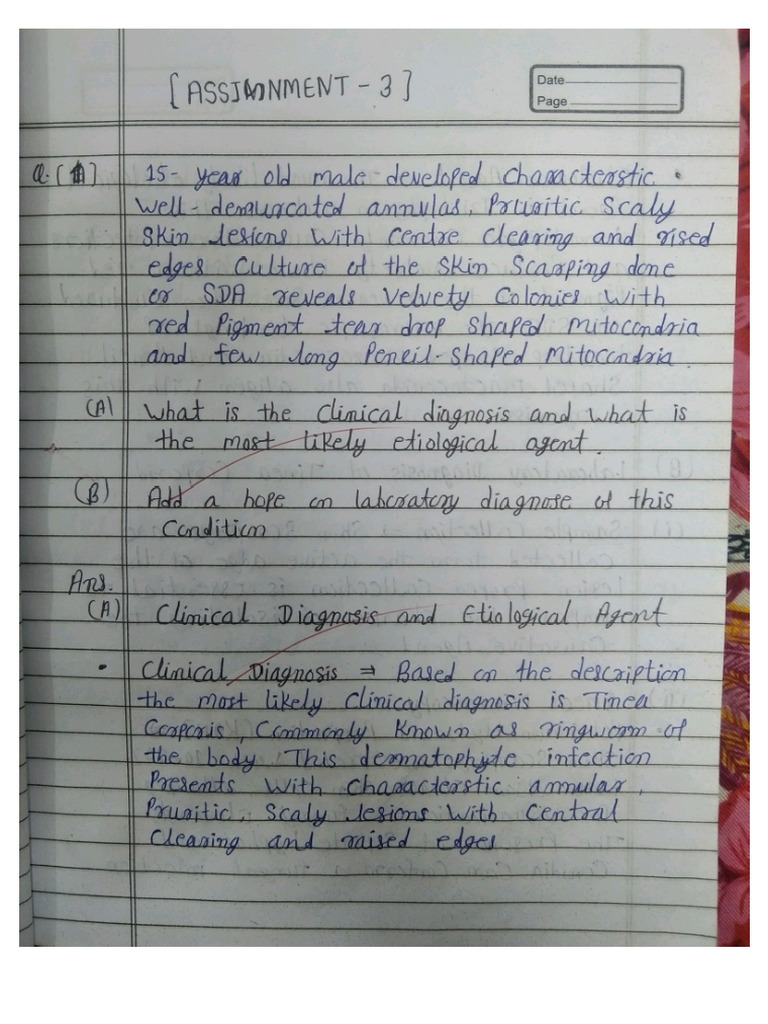 [ASSINMENT - 3]
Date
Page
Q. (1) 15- year old male developed characterstic
well-demurcated annulas, Pruritic Scaly
Skin lesions with centre clearing and rised
edges Culture of the Skin Scarping done
or SDA reveals velvety Colonies with
red Pigment tear drop shaped mitocondria
and few long Pencil-shaped mitocondria.
(A) What is the clinical diagnosis and what is
the most likely etiological agent.
(B) Add a hope on labcratory diagnose of this
Condition
Ans.
(A) Clinical Diagnosis and Etiological Agent
• Clinical Diagnosis ⇒ Based on the description
the most likely clinical diagnosis is Tinea
Corporis, Commonly known as ringworm of
the body This dermatophyte infection
Presents with characterstic annular,
Pruritic, Scaly lesions with Central
Clearing and raised edges